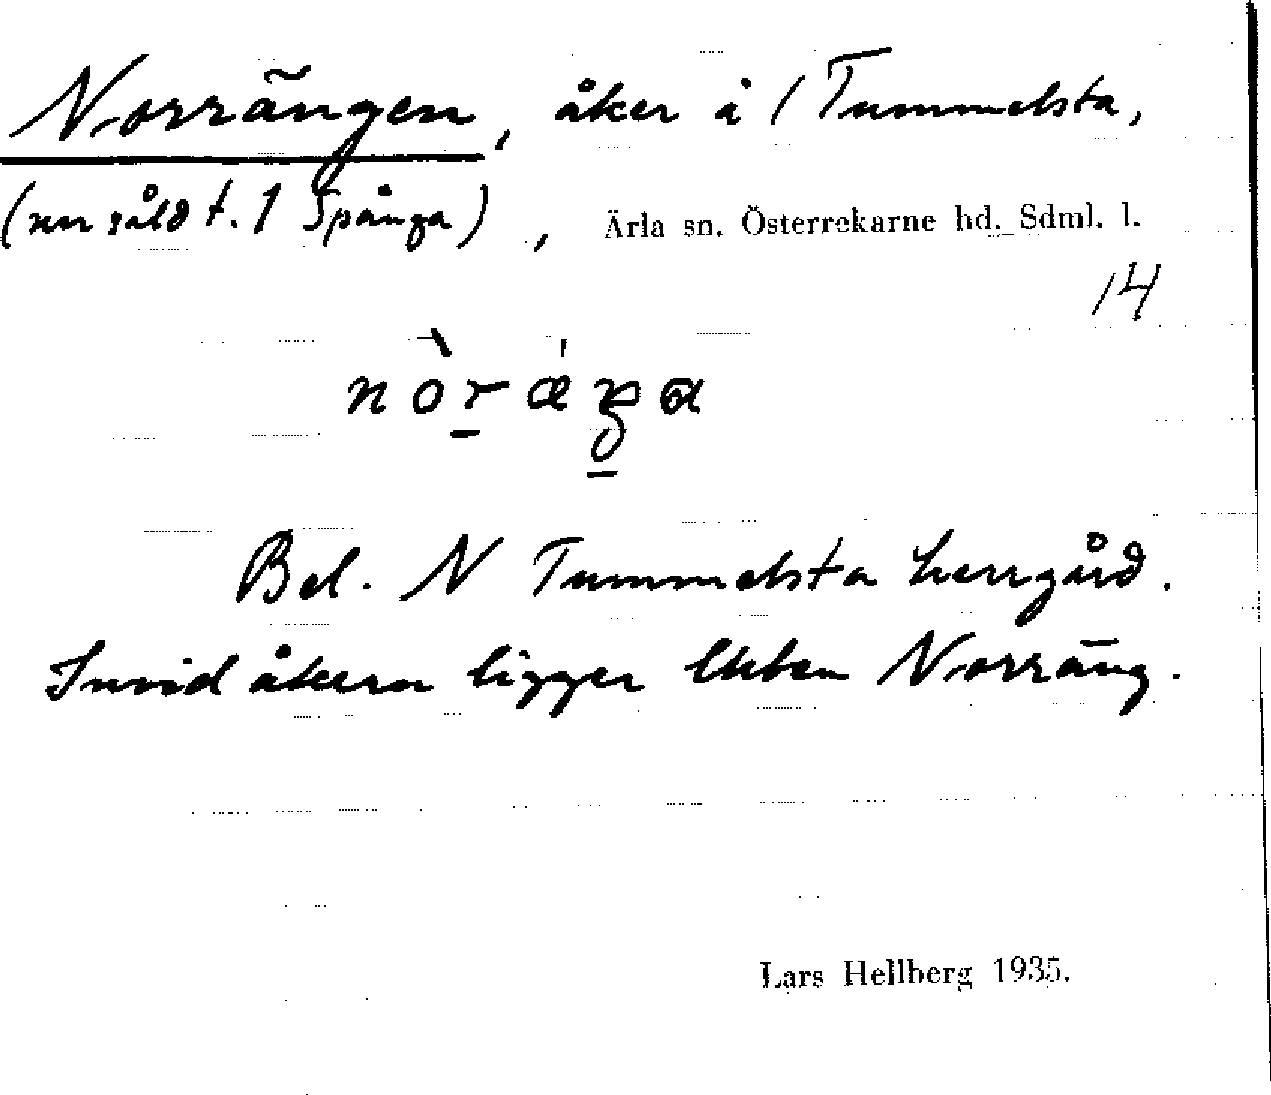 Norrängen, åker å 1 Tummelsta,
(nu såld t. 1 Spånga), Ärla sn. Österrekarne hd. Sdml. l.
14
Bel. N Tummelsta herrgård.
Invid åkern ligger Norräng.
Lars Hellberg 1935.